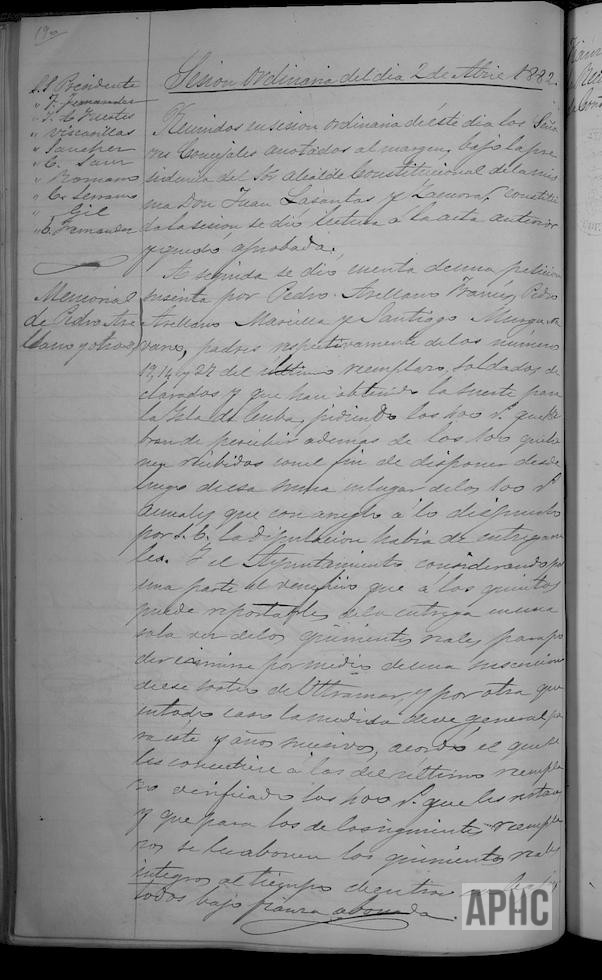 190
Sesion ordinaria del dia 2 de Abril 1882.
S.S. Presidente
" F. Fernandez
" F. C. Fuertes
" Viscasillas
" Sanchez
" C. Sanz
" Romano
" C. Serrano
" Gil
" C. Fernandez
Reunidos en sesion ordinaria de éste dia los Seño
res Concejales anotados al margen, bajo la pre
sidencia del Sor Alcalde Constitucional de la mis
ma Don Juan Lasantas y Zamora, constitui
da la sesion se dió lectura a la acta anterior
y quedó aprobada.
Memorial
de Pedro Are
llano y otros
A seguida se dió cuenta de una peticion
suscrita por Pedro Arellano Francés, Pedro
Arellano Marcilla y Santiago Murgu
padres respectivamente de los numeros
12, 14 y 27 del ultimo reemplazo, soldados de
clarados y que han obtenido la suerte para
la Isla de Cuba, pidiendo los 400 r.s que
de percibir ademas de los 100 que
recibidos con el fin de disponer desde
luego de esa suma en lugar de los 100 r.s
anuales que con arreglo a lo dispuesto
por S. E. la Diputacion habia de entregar
les. Y el Ayuntamiento, considerando por
una parte el beneficio que a los quintos
puede reportarles de la entrega en una
sola vez de los quinientos reales para po
der eximirse por medio de una
de ese sorteo de Ultramar, y por otra que
en todo caso la medida deve general pa
ra éste y años sucesivos, acordó el que se
les concediese á los del ultimo reempla
zo verificado los 400 r.s que les restan
y que para los de los siguientes reempla
zos se les abonen los quinientos reales
integros al tiempo de entrar
todos bajo fianza abonada.
APHC